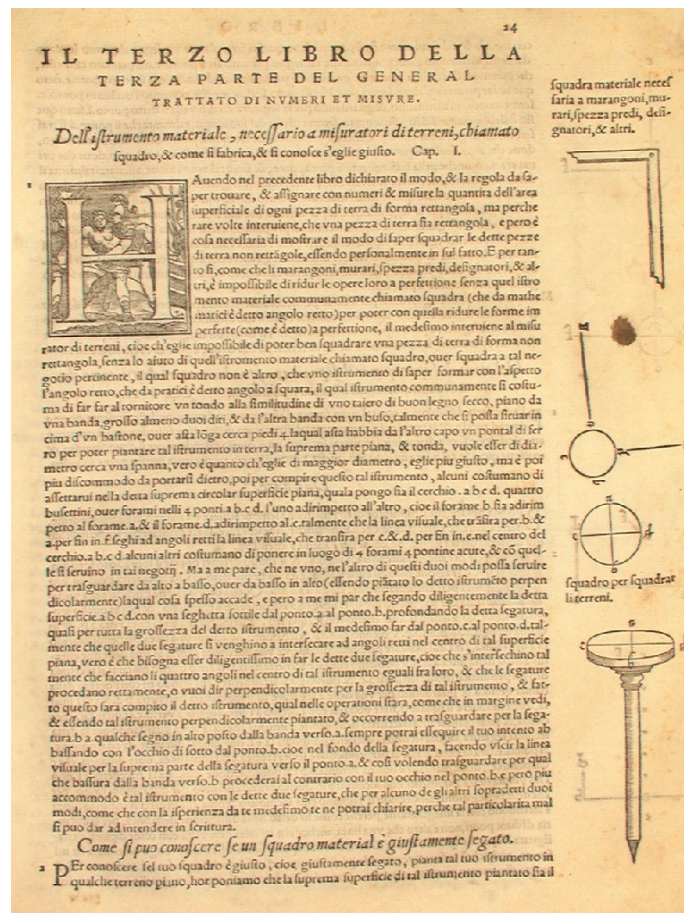 24
IL TERZO LIBRO DELLA
TERZA PARTE DEL GENERAL
TRATTATO DI NVMERI ET MISVRE.
Dell'istrumento materiale, necessario a misuratori di terreni, chiamato
squadro, & come si fabrica, & si conosce s'eglie giusto. Cap. I.
1
HAuendo nel precedente libro dichiarato il modo, & la regola da sa-
per trouare, & assignare con numeri & misure la quantita dell'area
superficiale di ogni pezza di terra di forma rettangola, ma perche
rare volte interuiene, che vna pezza di terra sia rettangola, e pero è
cosa necessaria di mostrare il modo di saper squadrar le dette pezze
di terra non rettãgole, essendo personalmente in sul fatto. E per tan-
to si, come che li marangoni, murari, spezza predi, designatori, & al-
tri, è impossibile di ridur le opere loro a perfettione senza quel istro
mento materiale communamente chiamato squadra (che da mathe
matici è detto angolo retto) per poter con quella ridure le forme im
perfette (come è detto) a perfettione, il medesimo interuiene al misu
rator di terreni, cioe ch'eglie impossibile di poter ben squadrare vna pezza di terra di forma non
rettangola, senza lo aiuto di quell'istromento materiale chiamato squadro, ouer squadra a tal ne-
gotio pertinente, il qual squadro non è altro, che vno istrumento di saper formar con l'aspetto
l'angolo retto, che da pratici è detto angolo a squara, il qual istrumento communamente si costu-
ma di far far al tornitore vn tondo alla similitudine di vno taiero di buon legno secco, piano da
vna banda, grosso almeno duoi diti, & da l'altra banda con vn buso, talmente che si possa firuar in
cima d'vn bastone, ouer asta lõga cerca piedi 4. laqual asta habbia da l'altro capo vn pontal di fer
ro per poter piantar tal istrumento in terra, la suprema parte piana, & tonda, vuole esser di dia-
metro cerca vna spanna, vero è quanto ch'eglie di maggior diametro, eglie piu giusto, ma è poi
piu discommodo da portarsi dietro, poi per compire questo tal istrumento, alcuni costumano di
assettarui nella detta suprema circolar superficie piana, quala pongo sia il cerchio. a b c d. quattro
busettini, ouer forami nelli 4 ponti a b c d. l'uno adirimpetto all'altro, cioe il forame b. sia adirim
petto al forame. a. & il forame. d. adirimpetto al. c. talmente che la linea visuale, che trãsira per. b. &
a. per fin in. f. seghi ad angoli retti la linea visuale, che transira per c. & .d. per fin in. e. nel centro del
cerchio. a b c d. alcuni altri costumano di ponere in luogo di 4 forami 4 pontine acute, & cõ quel-
le si seruino in tai negotij. Ma a me pare, che ne vno, ne l'altro di questi duoi modi possa seruire
per trasguardare da alto a basso, ouer da basso in alto (essendo piãtato lo detto istrumẽto perpen
dicolarmente) laqual cosa spesso accade, e pero a me mi par che segando diligentemente la detta
superficie. a b c d. con vna seghetta sottile dal ponto. a. al ponto. b. profondando la detta segatura,
quasi per tutta la grossezza del detto istrumento, & il medesimo far dal ponto. c. al ponto. d. tal-
mente che quelle due segature si venghino a intersecare ad angoli retti nel centro di tal superficie
piana, vero è che bisogna esser diligentissimo in far le dette due segature, cioe che s'intersechino tal
mente che facciano li quattro angoli nel centro di tal istrumento eguali fra loro, & che le segature
procedano rettamente, o vuoi dir perpendicolarmente per la grossezza di tal istrumento, & fat-
to questo sara compito il detto istrumento, qual nelle operationi stara, come che in margine vedi,
& essendo tal istrumento perpendicolarmente piantato, & occorrendo a trasguardare per la sega-
tura. b a. qualche segno in alto posto dalla banda verso. a. sempre potrai essequire il tuo intento ab
bassando con l'occhio di sotto dal ponto. b. cioe nel fondo della segatura, facendo vscir la linea
visuale per la suprema parte della segatura verso il ponto. a. & cosi volendo trasguardare per qual
che bassura dalla banda verso. b procederai al contrario con il tuo occhio nel ponto. b. e pero piu
accommodo è tal istrumento con le dette due segature, che per alcuno de gli altri sopradetti duoi
modi, come che con la isperienza da te medesimo te ne potrai chiarire, perche tal particolarita mal
si puo dar ad intendere in scrittura.
Come si puo conoscere se un squadro material è giustamente segato.
2
PEr conoscere sel tuo squadro è giusto, cioe giustamente segato, pianta tal tuo istrumento in
qualche terreno piano, hor poniamo che la suprema superficie di tal istrumento piantato sia il
squadra materiale neces
saria a marangoni, mu-
rari, spezza predi, desi-
gnatori, & altri.
squadro per squadrar
li terreni.